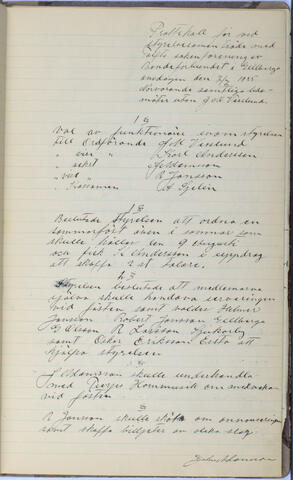 Protokoll för vid
styrelsesammanträde med
sockenförening av
Bondeförbundet i Ellberga
onsdagen den 3/7 1935
Närvarande samtliga leda-
möter utom G W Vieslund
1 §
Val av funktionärer inom styrelsen
till Ordförande G W Vieslund
" vice " Karl Andersson
" sekret
" vice " R Jansson
" Kassören A Gelin
2 §
Beslutade styrelsen att ordna en
sommarfäst även i sommar som
skulle hållas den 9 Augusti
och fick K Andersson i uppdrag
att skaffa 2 st talare.
3 §
Styrelsen beslutade att medlemarna
själva skulle handhava serveringen
vid fästen samt valdes Helmer
Jansson Robert Jansson Ellberga
G Olsson R Larsson
samt Oskar Eriksson att
hjälpa styrelsen
4
skulle underhandla
med musik om medverkan
vid fästen
5
R Jansson skulle sköta om annonseringen
samt skaffa biljetter av olika slag